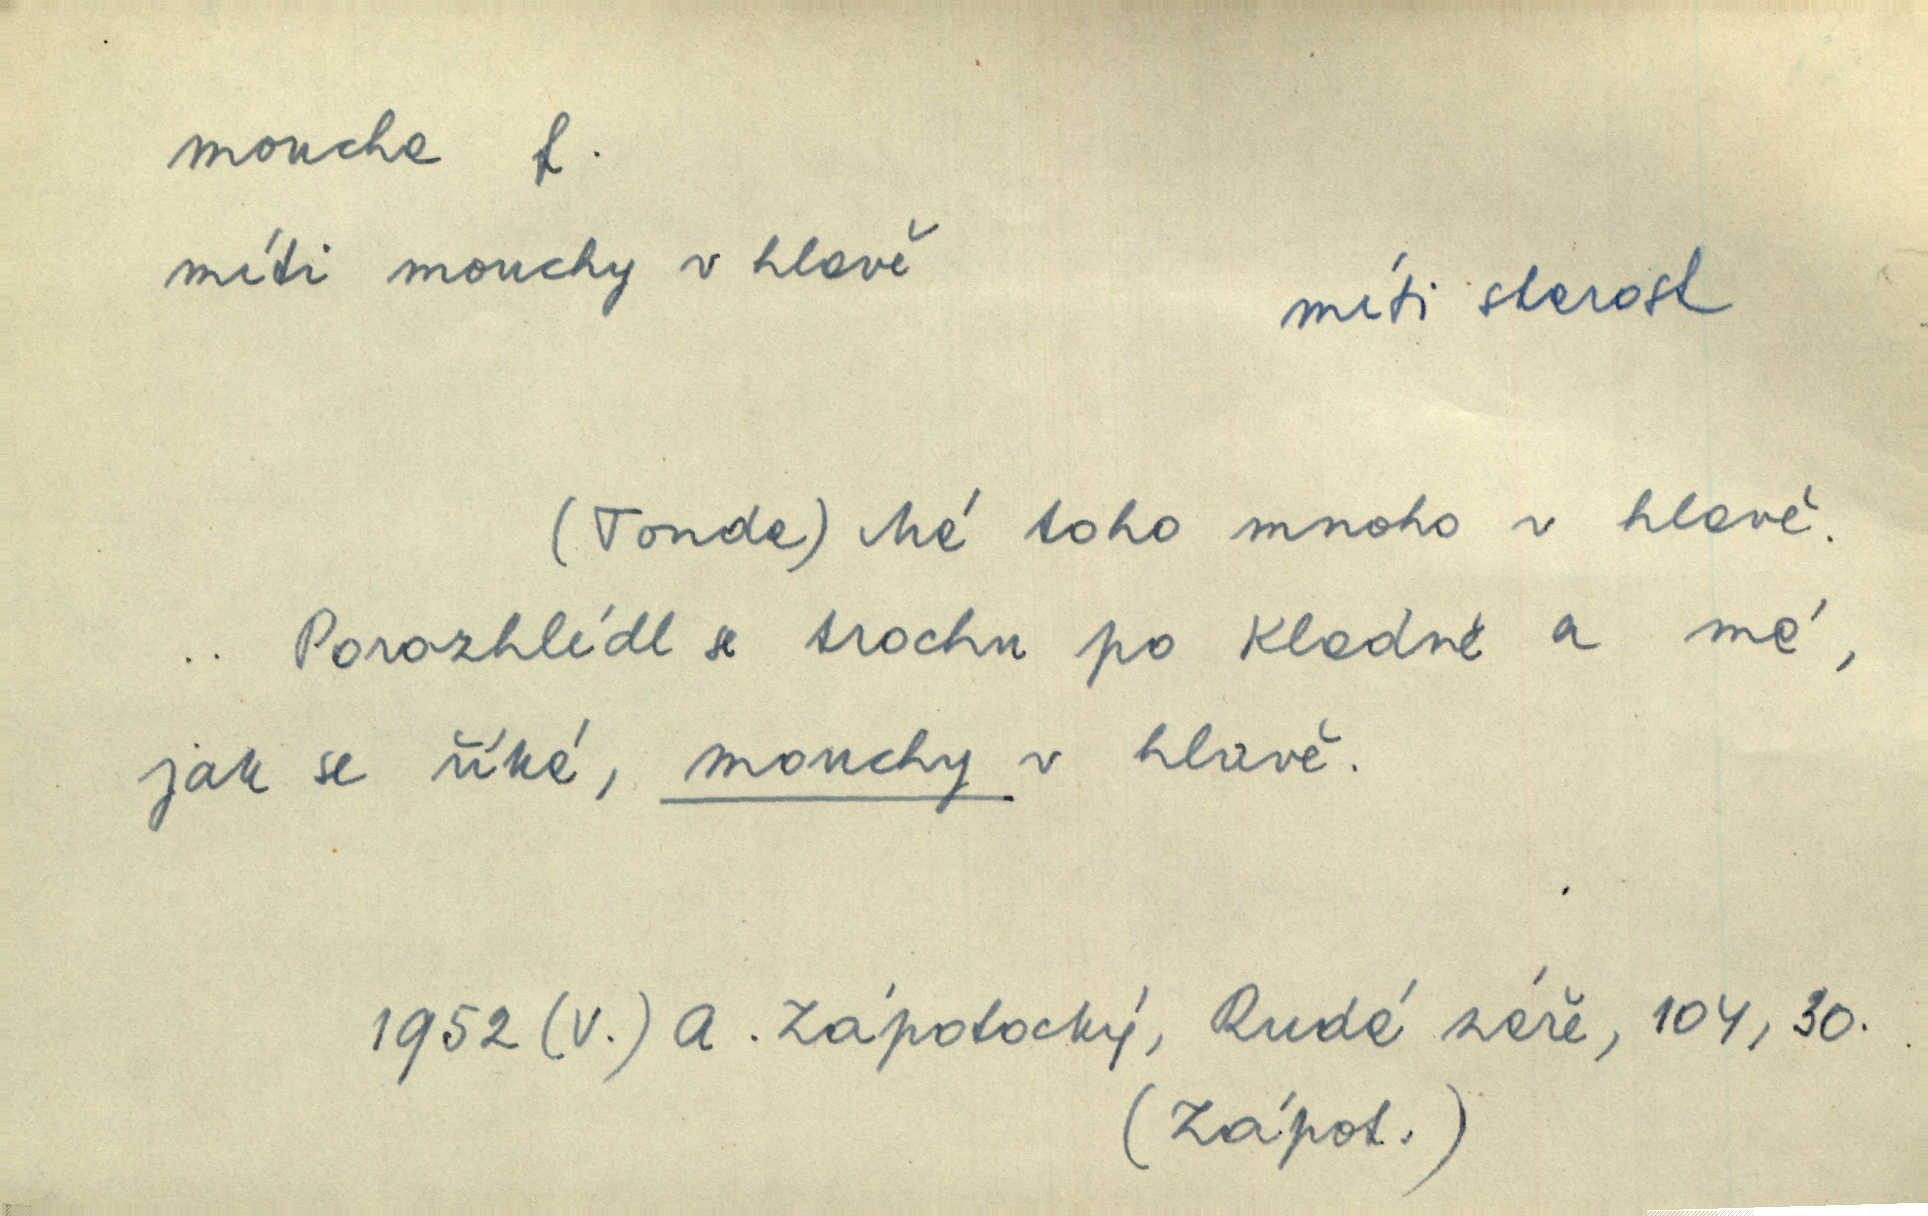 moucha f.
míti mouchy v hlavě
míti starost
(Tonda) Má toho mnoho v hlavě.
.. Porozhlédl se trochu po Kladně a má,
jak se říká, mouchy v hlavě.
1952 (V.) A. Zápotocký, Rudá záře, 104, 30.
(Zápot.)